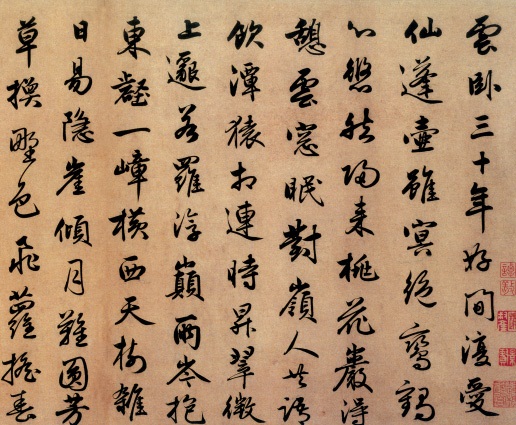 雲卧三十年好閒復愛
仙蓬壺雖冥絕鸞鶴
心悠然歸來桃花巖得
憩雲窓眠對嶺人共語
飲潭猿相連時昇翠微
上邈若羅浮巔兩岑抱
東壑一嶂橫西天樹雜
日易隱崖傾月難圓芳
草換野色飛蘿搖春